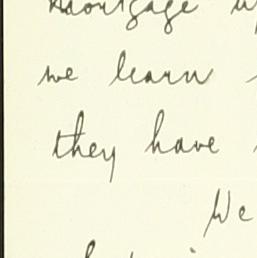 mortgage
we learn
they have
We